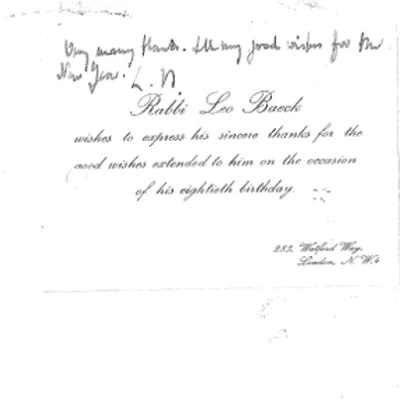 Very many thanks. All my good wishes for the
New Year. L. B.
Rabbi Leo Baeck
wishes to express his sincere thanks for the
good wishes extended to him on the occasion
of his eightieth birthday.
283, Watford Way,
London, N.W.4